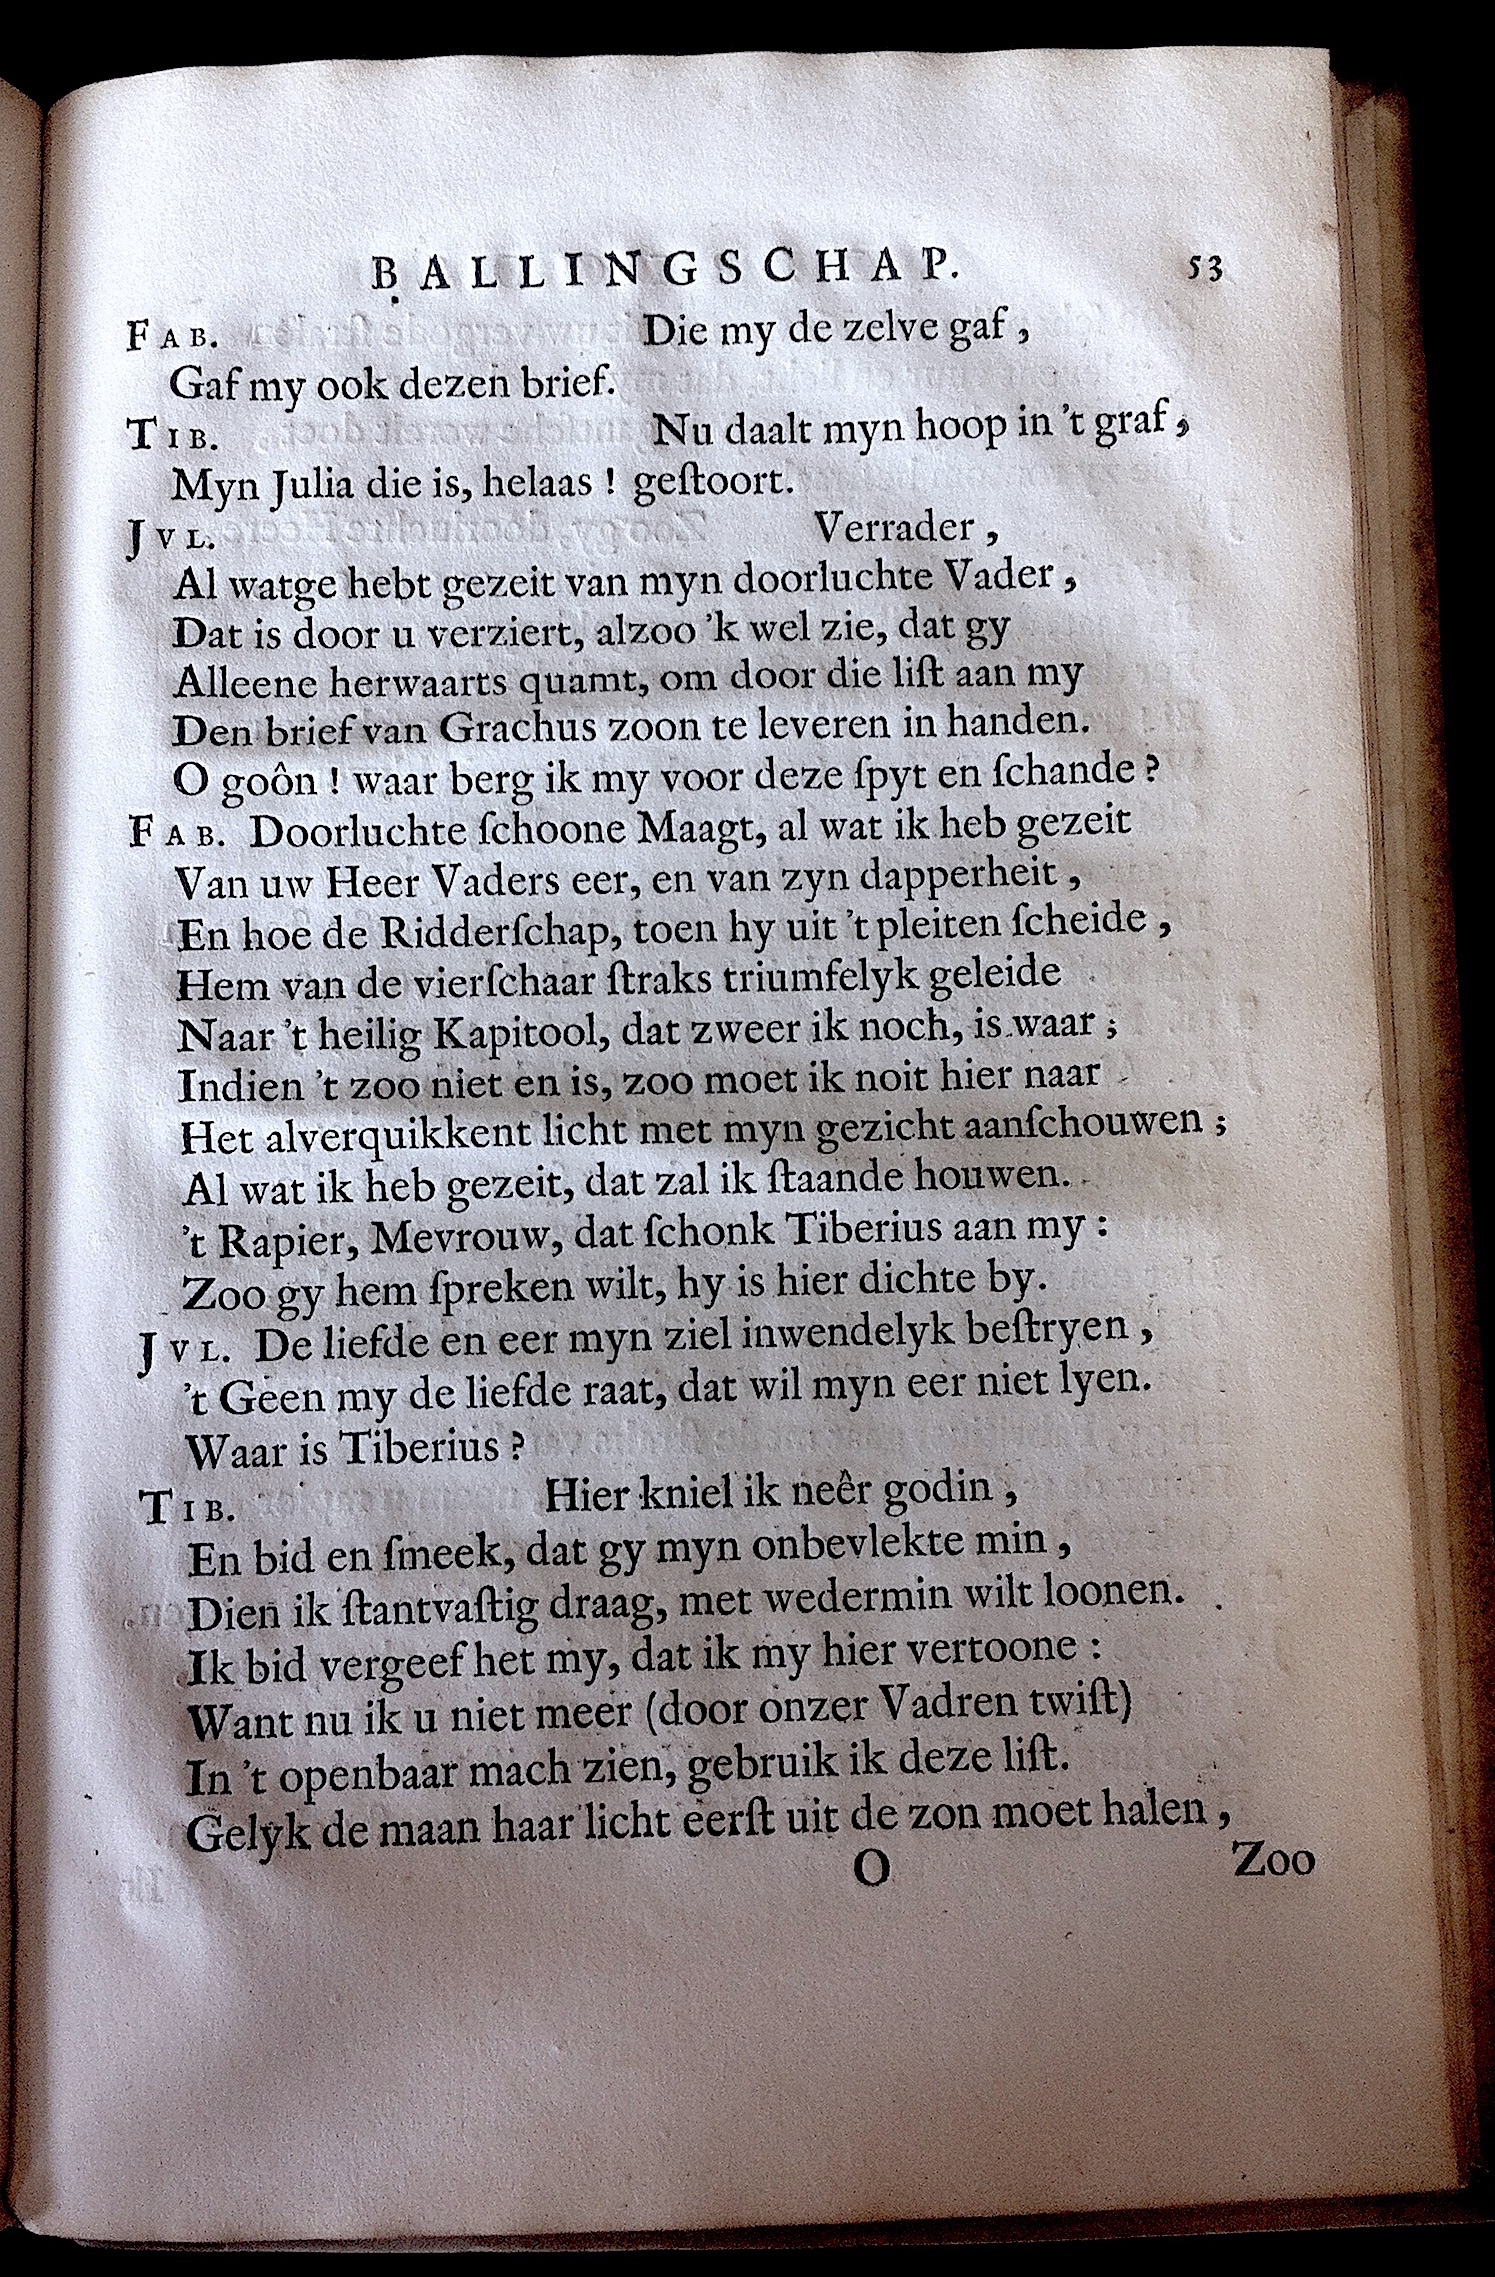 BALLINGSCHAP. 53
FAB. Die my de zelve gaf,
Gaf my ook dezen brief.
TIB. Nu daalt myn hoop in 't graf,
Myn Julia die is, helaas! geſtoort.
JVL. Verrader,
Al watge hebt gezeit van myn doorluchte Vader,
Dat is door u verziert, alzoo 'k wel zie, dat gy
Alleene herwaarts quamt, om door die liſt aan my
Den brief van Grachus zoon te leveren in handen.
O goôn! waar berg ik my voor deze ſpyt en ſchande?
FAB. Doorluchte ſchoone Maagt, al wat ik heb gezeit
Van uw Heer Vaders eer, en van zyn dapperheit,
En hoe de Ridderſchap, toen hy uit 't pleiten ſcheide,
Hem van de vierſchaar ſtraks triumfelyk geleide
Naar 't heilig Kapitool, dat zweer ik noch, is waar;
Indien 't zoo niet en is, zoo moet ik noit hier naar
Het alverquikkent licht met myn gezicht aanſchouwen;
Al wat ik heb gezeit, dat zal ik ſtaande houwen.
't Rapier, Mevrouw, dat ſchonk Tiberius aan my:
Zoo gy hem ſpreken wilt, hy is hier dichte by.
JVL. De liefde en eer myn ziel inwendelyk beſtryen,
't Geen my de liefde raat, dat wil myn eer niet lyen.
Waar is Tiberius?
TIB. Hier kniel ik neêr godin,
En bid en ſmeek, dat gy myn onbevlekte min,
Dien ik ſtantvaſtig draag, met wedermin wilt loonen.
Ik bid vergeef het my, dat ik my hier vertoone:
Want nu ik u niet meer (door onzer Vadren twiſt)
In 't openbaar mach zien, gebruik ik deze liſt.
Gelyk de maan haar licht eerſt uit de zon moet halen,
O Zoo